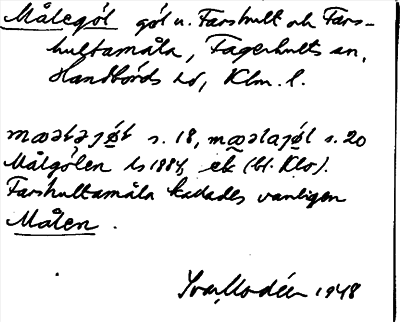 Målegöl göl u. Farshult och Fars-
hultamåla, Fagerhults sn,
Handbörds hd, Klm. l.
s. 18, s. 20
Målgölen ls 1884, ek (bl. Klo).
Farshultamåla kallades vanligen
Målen.
Yvar Modéer 1948